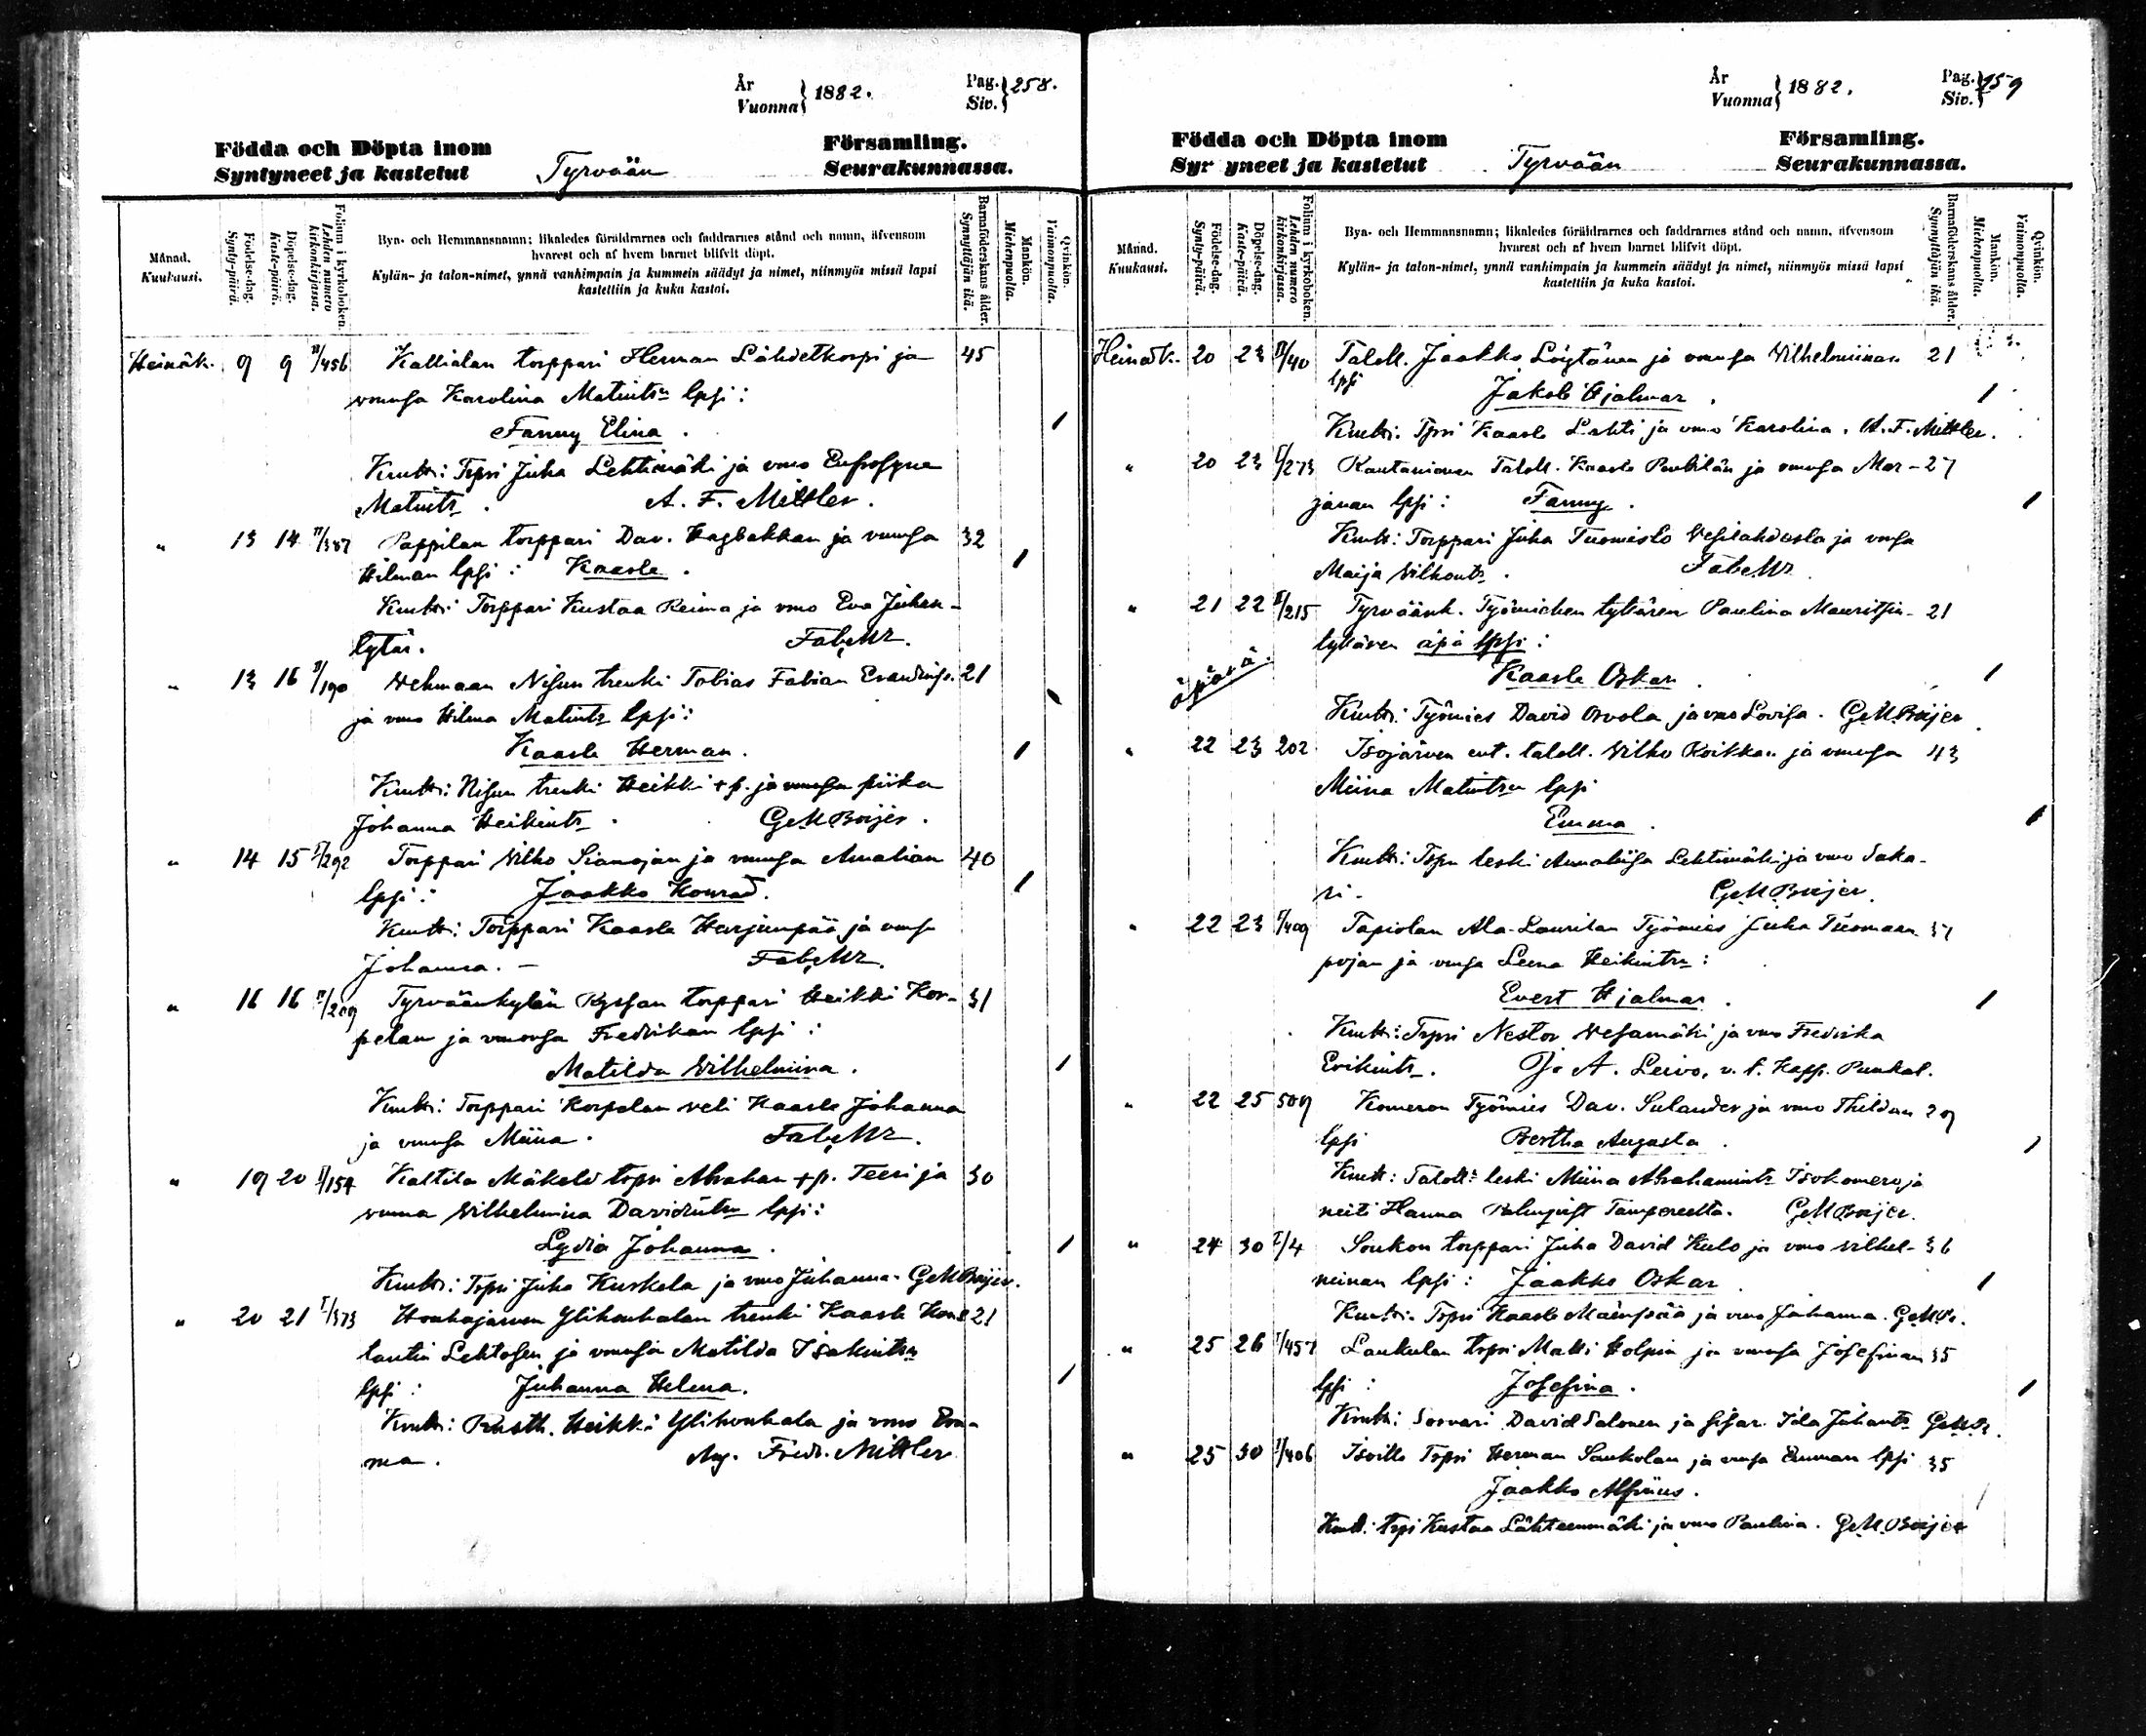 År
Vuonna } 1882.
Pag.
Siv. } 258.
Födda och Döpta inom Församling.
Syntyneet ja kastetut Tyrvään Seurakunnassa.
Månad.
Kuukausi.
Födelse-dag.
Synty-päivä.
Döpelse-dag.
Kaste-päivä.
Folium i kyrkoboken.
Lehden numero kirkonkirjassa.
Bya- och Hemmansnamn; likaledes föräldrarnes och faddrarnes stånd och namn, äfvensom
hvarest och af hvem barnet blifvit döpt.
Kylän- ja talon-nimet, ynnä vanhimpain ja kummein säädyt ja nimet, niinmyös missä lapsi
kastettiin ja kuka kastoi.
Barnaföderskans ålder.
Synnyttäjän ikä.
Mankön.
Miehenpuolta.
Qvinkön.
Vaimonpuolta.
Heinäk. 9 9 II/456 Kallialan torppari Herman Lähdetkorpi ja 45
vmnsa Karolina Matintr lpsi:
Fanny Elina.
Kmtt: Tpri Juha Lehtimäki ja vmo Eufrosyne
Matintr. A. F. Mittler.
" 13 14 II/387 Pappilan torppari Dav. Hagbakkan ja vmnsa 32
Hilman lpsi: Kaarle.
Kmtt: Torppari Kustaa Reima ja vmo Eva Juhan-
tytär.
" 13 16 II/190 Wehmaan Nisun trenki Tobias Fabian 21
ja vmo Hilma Matintr lpsi:
Kaarle Herman.
Kmtt: Nisun trenki Heikki + p. ja piika
Johanna Heikintr. G M Boijer.
" 14 15 I/292 Torppari Vilho Sianojan ja vmnsa Amalian 40
lpsi: Jaakko Konrad.
Kmtt: Torppari Kaarle Harjunpää ja vmsa
Johanna. –
" 16 16 II/209 Tyrväänkylän Ryssän torppari Heikki Kor- 31
pelan ja vmonsa Fredrikan lpsi:
Matilda Wilhelmiina.
Kmtt: Torppari Korpelan veli Kaarle Johanna
ja vmnsa Miina.
" 19 20 I/154 Kaltila Mäkelä tprri Abraham + p. Teeri ja 30
vmna Wilhelmina Davidintr lpsi:
Lydia Johanna.
Kmtt: Tpri Juha Kuskela ja vmo Juhanna. G M Boijer.
" 20 21 I/373 Houhajärven Ylihouhalan trenki Kaarle Kons 21
tantin Lehtosen ja vmnsa Matilda Isakintr
lpsi: Juhanna Helena.
Kmtt: Rustth. Heikki Ylihouhala ja vmo Em-
ma. Aug. Fredr. Mittler
År
Vuonna } 1882.
Pag.
Siv. } 259
Födda och Döpta inom Församling.
Syr yneet ja kastetut Tyrvään Seurakunnassa.
Månad.
Kuukausi.
Födelse-dag.
Synty-päivä.
Döpelse-dag.
Kaste-päivä.
Folium i kyrkoboken.
Lehden numero kirkonkirjassa.
Bya- och Hemmansnamn; likaledes föräldrarnes och faddrarnes stånd och namn, äfvensom
hvarest och af hvem barnet blifvit döpt.
Kylän- ja talon-nimet, ynnä vanhimpain ja kummein säädyt ja nimet, niinmyös missä lapsi
kastettiin ja kuka kastoi.
Barnaföderskans ålder.
Synnyttäjän ikä.
Mankön.
Miehenpuolta.
Qvinkön.
Vaimonpuolta.
Heinäk. 20 23 II/40 Taloll. Jaakko Löytänen ja vmnsa Wilhelmiinan 21
lpsi Jakob Hjalmar.
Kmtt: Tpri Kaarle Lahti ja vmo Karolina. A. F. Mittler.
" 20 23 I/273 Rautaniemen Taloll. Kaarle ja vmnsa Mar- 27
janan lpsi: Fanny.
Kmtt: Torppari Juha Tuomisto Vesilahdesta ja vmsa
Maija Vilhontr.
" 21 22 II/215 Tyrväänk. Työmiehen tyttären Paulina Mauritsin- 21
tyttären äpä lpsi:
äpärä.
Kaarle Oskar
Kmtt: Työmies David Orvola ja vmo Lovisa. G M Boijer.
" 22 23 202 Isojärven ent. taloll. Vilho Koikkan ja vmnsa 43
Miina Matintr lpsi
Emma.
Kmtt: Tprn leski Annaliisa Lehtimäki ja vmo Saka-
ri. G M Boijer.
" 22 23 I/409 Tapiolan Ala-Laurilan Työmies Juha Tuomaan 37
pojan ja vmsa Leena Heikintr:
Evert Hjalmar.
Kmtt: Tpri Nestor Vesamäki ja vmo Fredrika
Erikintr. A. Leivo, v. t. Kapp. Punkal.
" 22 25 509 Komeron Työmies Dav. Sulander ja vmo Thildan 29
lpsi Bertha Augusta.
Kmtt: Taloll: leski Miina Abrahamintr Isokomero ja
neiti Hanna Palmqvist Tampereelta. G M Boijer.
" 24 30 I/4 Soukon torppari Juha David Kulo ja vmo Vilhel- 36
miinan lpsi: Jaakko Oskar
Kmtt: Tpri Kaarle Mäenpää ja vmo Johanna. G M B.
" 25 26 I/457 Laukulan tpri Matti Holpin ja vmnsa Josefinan 35
lpsi: Josefina.
Kmtt: Sorvari David Salonen ja sisar Ida Juhantr G M B.
" 25 30 I/406 Tpri Herman Saukolan ja vmsa Emman lpsi 35
Jaakko Alfrius.
Kmtt: tpri Kustaa Lähteenmäki ja vmo Paulina. G M Boijer